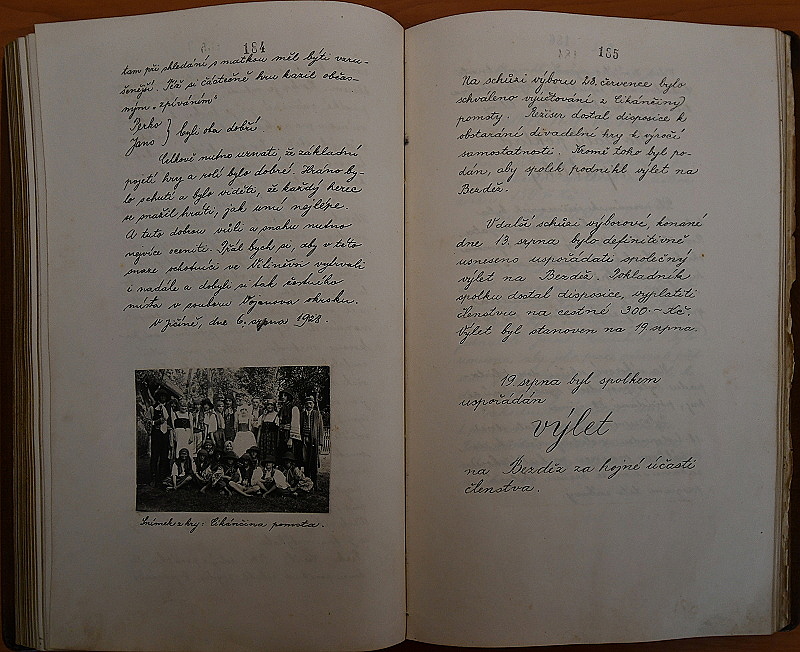 184
tam při shledání s matkou měl býti vzru-
šenější. Též si částečně hru kazil občas-
ným „zpíváním“
Berko } byli oba dobří
Jano
Celkově nutno uznati, že základní
pojetí hry a rolí bylo dobré. Hráno by-
lo s chutí a bylo viděti, že každý herec
se snažil hráti, jak umí nejlépe.
A tuto dobrou vůli a snahu nutno
nejvíce oceniti. Přál bych si, aby v této
snaze ochotníci ve vytrvali
i nadále a dobyli si tak čestného
místa v souboru Vojanova okrsku.
V Jičíně, dne 6. srpna 1928.
Snímek z hry: Cikánčina pomsta.
185
Na schůzi výboru 23. července bylo
schváleno vyúčtování z Cikánčiny
pomsty. Režiser dostal disposice k
obstarání divadelní hry k výročí
samostatnosti. Kromě toho byl po-
dán, aby spolek podnikl výlet na
Bezděz.
V další schůzi výborové, konané
dne 13. srpna bylo definitivně
usneseno uspořádati společný
výlet na Bezděz. Pokladník
spolku dostal disposice, vyplatiti
členstvu na cestné 300.- Kč.
Výlet byl stanoven na 19. srpna.
19. srpna byl spolkem
uspořádán
výlet
na Bezděz za hojné účasti
členstva.